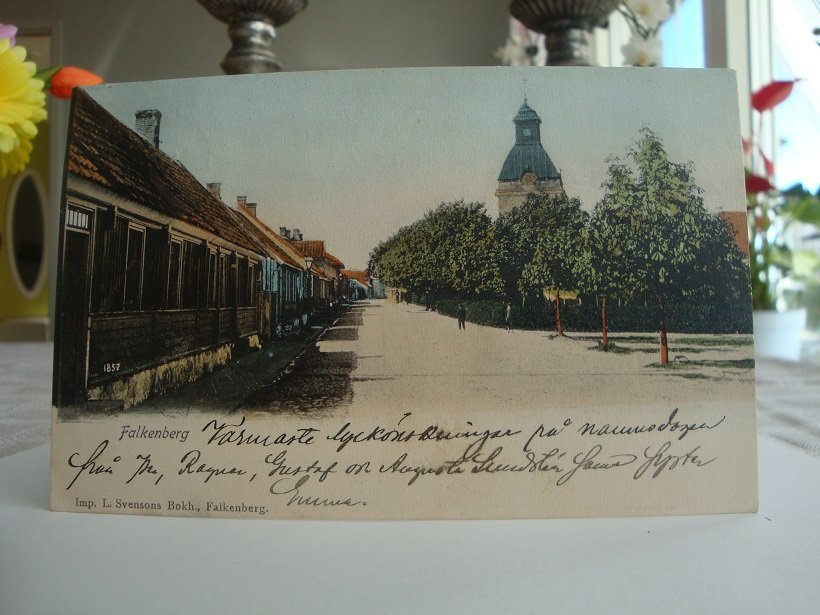 1857
Falkenberg Varmaste lyckönskningar på namnsdagen
från Ragnar, Gustaf och Augusta Sundslin samt syster
Emma.
Imp. L. Svensons Bokh., Falkenberg.